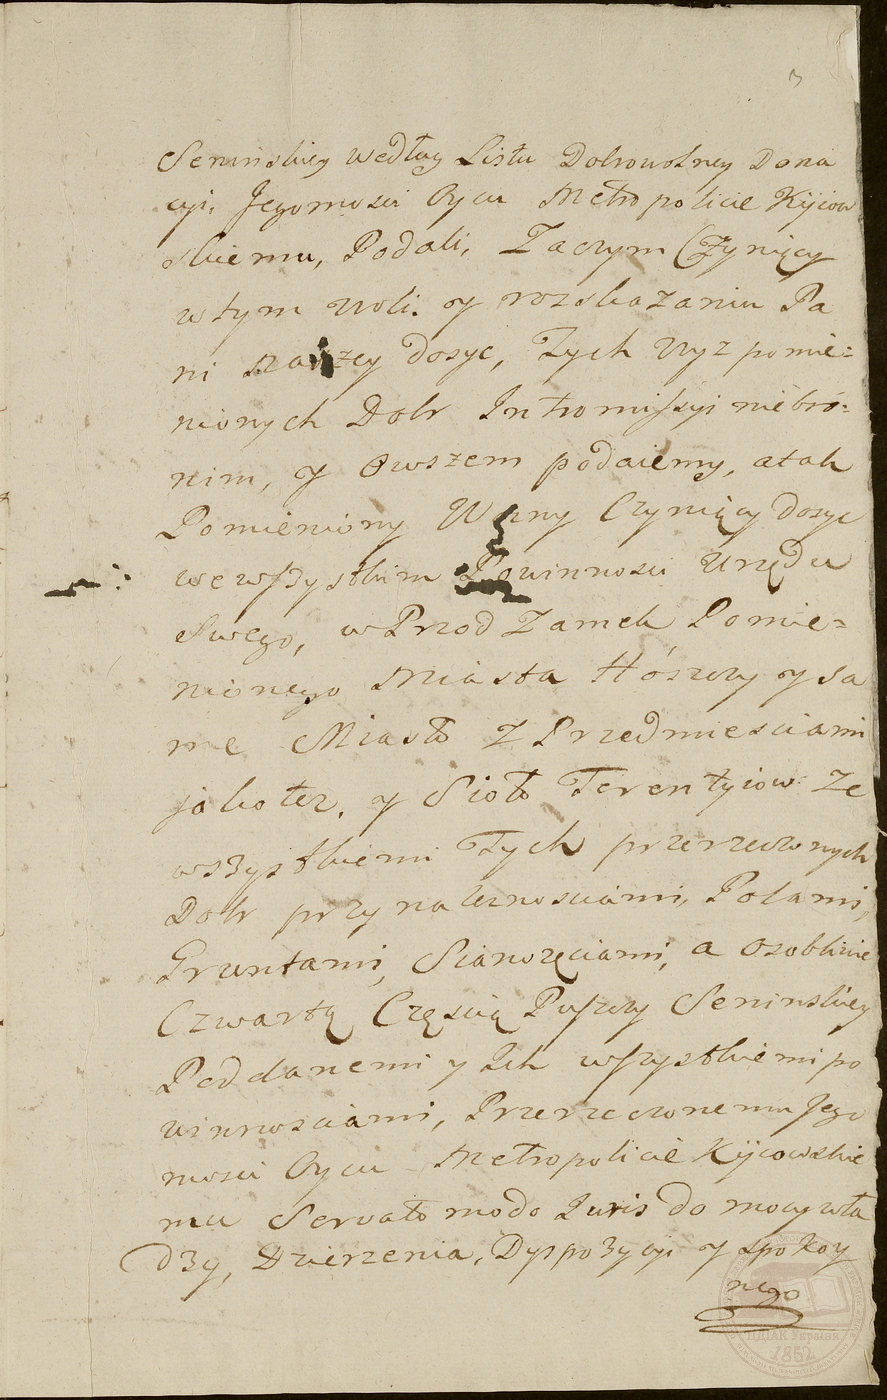 3
Seninskiey według Listu Dobrowolney Dona
cyi. Jegomosci Oycu Metropolicie Kijow
skiemu, Podali, Zaczym Czyniący
w tym woli. y rozskazaniu Pa
ni naszey dosyc, Tych wyz pomie=
nionych Dobr Intromissyi niebro=
nim, y Owszem podaiemy, a tak
Pomieniony Wzny Czyniący dosyc
we wszystkim Powinnosci Urzędu
Swego, w Przod Zamek Pomie=
nionego Miasta Hószczy y sa
me Miasto z Przedmiesciami
jako tez. y Sioło Terentyiow ze
wszystkiemi Tych przerzeczonych
Dobr przynaleznosciami, Polami,
Gruntami, Sianozęciami, a osobliwie
Czwartą Częscią Puszczy Seninskiey
Poddanemi y Ich wszystkiemi po
winnosciami, Przerzeczonemu Jego
mosci Oycu Metropolicie Kijcowskie
mu Servato modo Iuris do mocy wła
dzy, Dzierzenia, Dyspozycyi y spokoy
nego
ЦДІАК України
1852